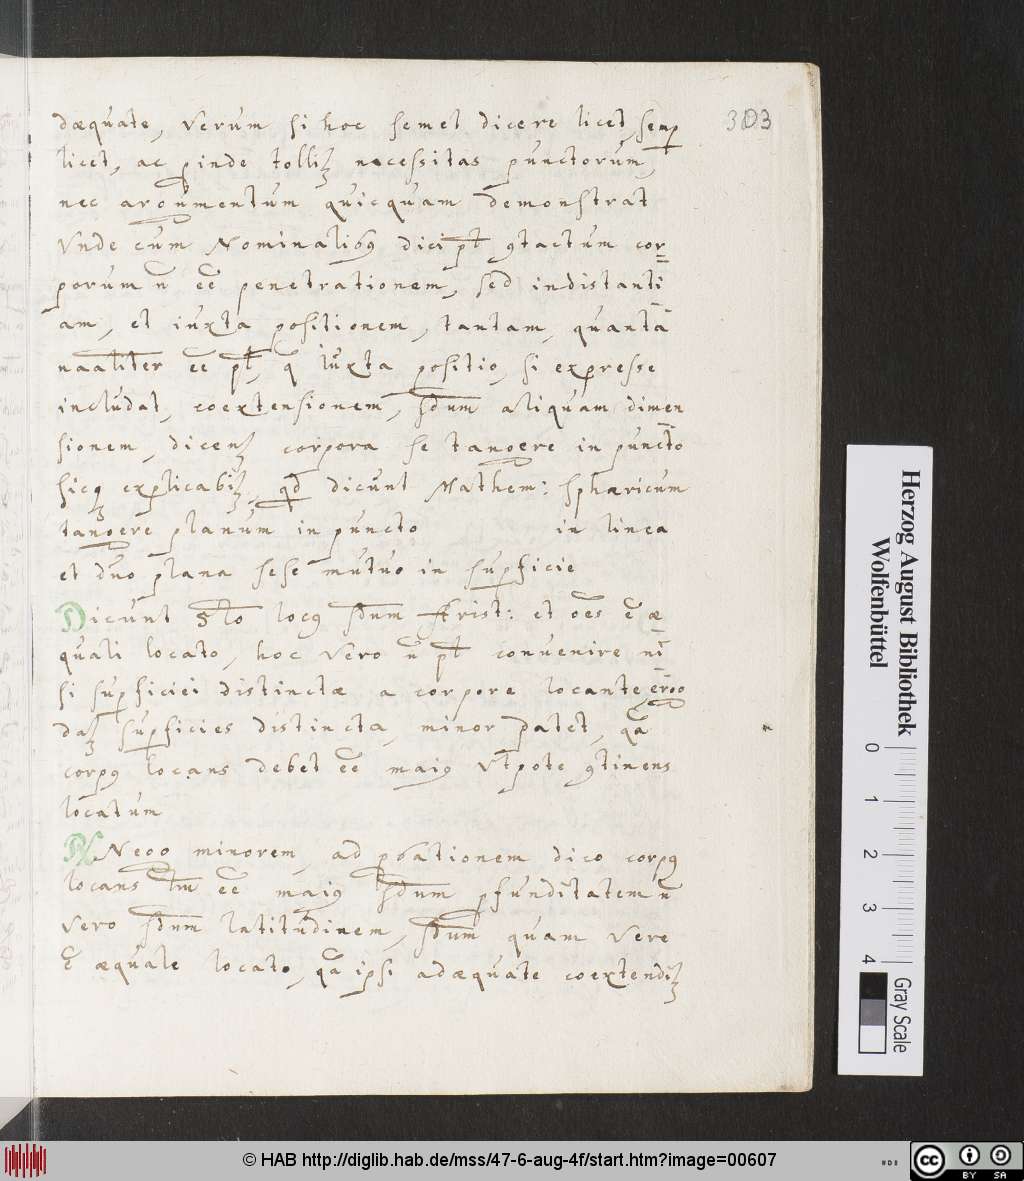 dæquate, verum si hoc semel dicere licet, semp
licet, ac pinde tolliz necessitas punctorum,
nec argumentum quicquam demonstrat
Vnde cum Nominalibꝯ dici pt ꝯtactum cor=
porum n̄ eē penetrationem, sed indistanti-
am, et iuxta positionem, tantam, quanta
naaliter eē pt, q iuxta positio, si expresse
includat, coextensionem, sdum aliquam dimen-
sionem, dicenz corpora se tangere in puncto
sicq explicabiz, qd dicunt Mathem: sphæricum
tangere planum in puncto in linea
et duo plana sese mutuo in supficie
Dicunt 5to locꝯ sdum Arist: et oēs ē æ=
quali locato, hoc vero n̄ pt conuenire ni=
si supficiei distinctæ a corpore locante, ergo
daz supficies distincta, minor patet, qa
corpꝯ locans debet eē maiꝯ Vtpote ꝯtinens
locatum
R Nego minorem, ad pbationem dico corpꝯ
locans tm eē maiꝯ sdum pfunditatem n̄
vero sdum latitudinem, sdum quam vere
ē æquale locato, qa ipsi adæquate coextendiz
303
Herzog August Bibliothek
Wolfenbüttel
0 1 2 3 4
Gray Scale
© HAB http://diglib.hab.de/mss/47-6-aug-4f/start.htm?image=00607
cc BY SA